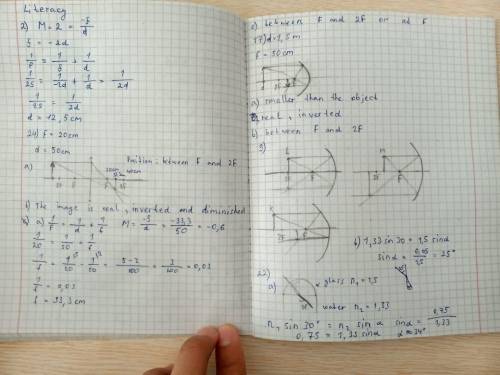 Literacy
2) M=2 = -f/d
f = -2d
1/F = 1/f + 1/d
1/25 = 1/-2d + 1/d = 1/2d
1/25 = 1/2d
d = 12,5cm
24) F = 20cm
d = 50cm
Position: between F and 2F
a)
b) The image is real, inverted and diminished
a) 1/F = 1/d + 1/f M = -f/d = -33,3/50 = -0,6
1/20 = 1/50 + 1/f
1/f = 1/20 - 1/50 = 5-2/100 = 3/100 = 0,03
1/f = 0,03
f = 33,3cm
c) between F and 2F or at F
17) d=1,5m
F = 50cm
a) smaller than the object
real, inverted
b) between F and 2F
9)
b) 1,33 sin 30 = 1,5 sinα
sinα = /1,5 = 25°
22)
a) glass n₁ = 1,5
water n₂ = 1,33
n₁ sin 30° = n₂ sin α sinα = 0,75/1,33
0,75 = 1,33 sinα α ≈ 34°